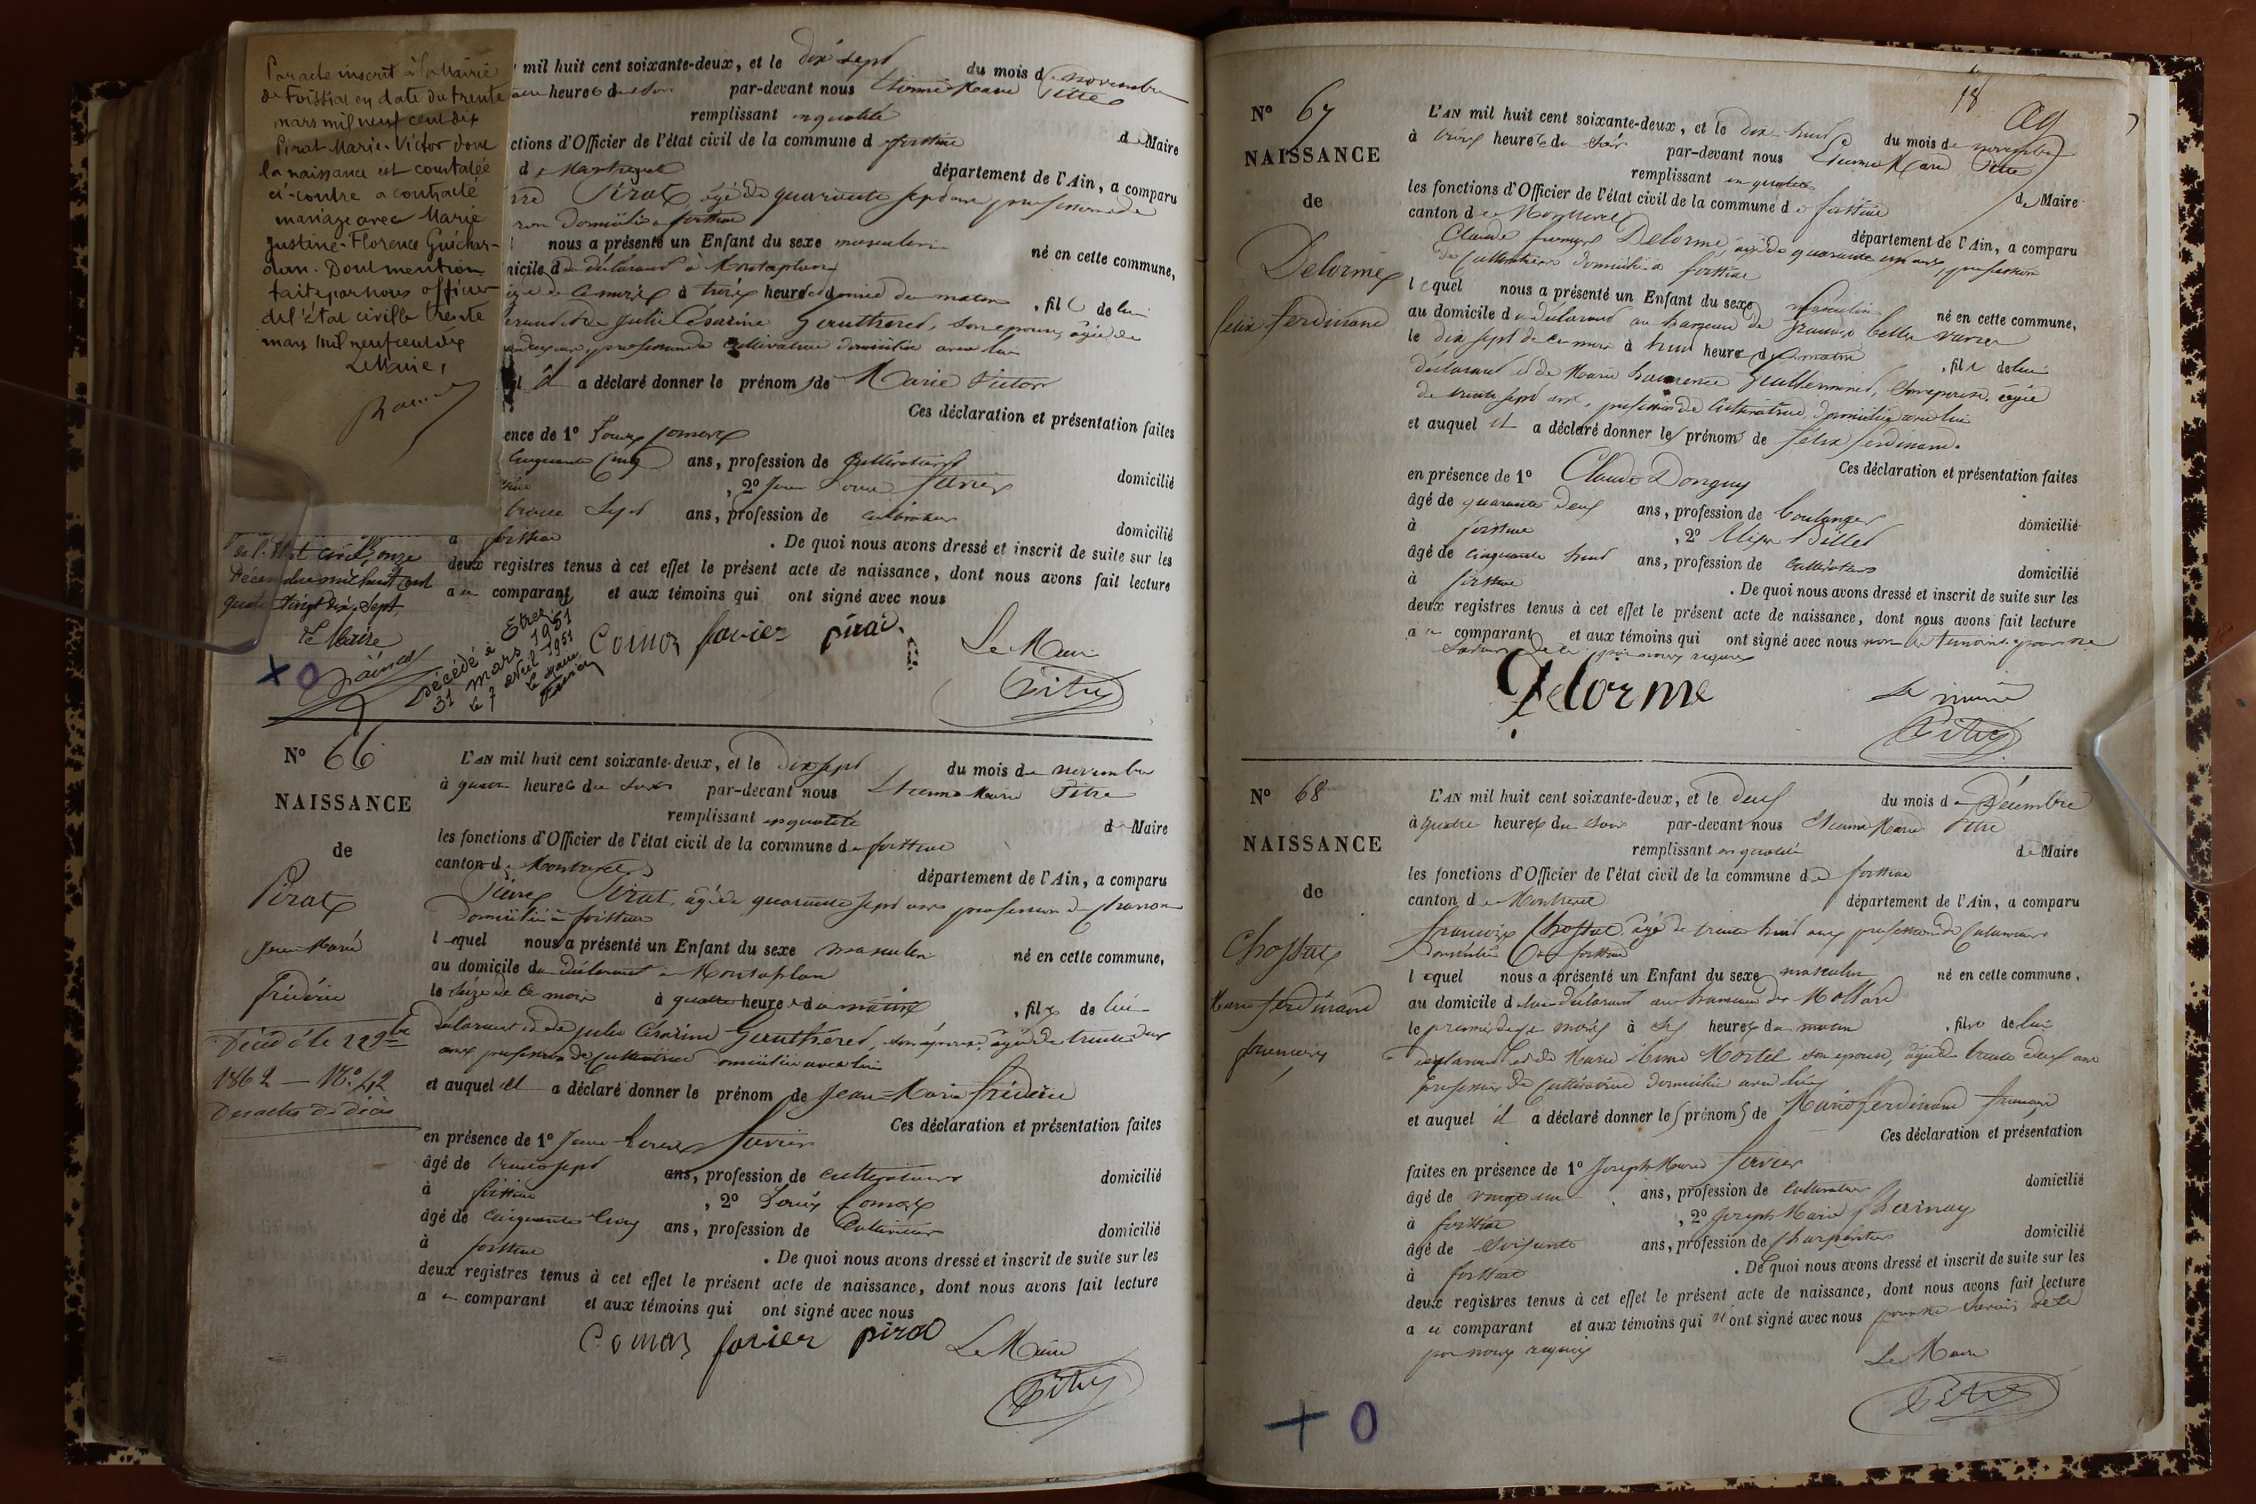 Par acte inscrit à la Mairie
de Foissiat en date du trente
mars mil neuf cent dix
Pirat Marie-Victor dont
la naissance est constatée
ci-contre a contracté
mariage avec Marie
Justine-Florence Guichar-
dan. Dont mention
faite par nous officier
de l'état civil le trente
mars mil neuf cent dix
Le Maire,
mil huit cent soixante-deux, et le dix sept du mois de novembre
heures du soir par-devant nous Etienne Marie Pitre
remplissant en qualité de Maire
ctions d'Officier de l'état civil de la commune de foissiat
de Montrevel département de l'Ain, a comparu
Pirat, âgé de quarante sept ans profession de
domicilié à foissiat
nous a présenté un Enfant du sexe masculin né en cette commune,
micile du déclarant à Montaplan
de ce mois à trois heures et demie du matin, fils de lui
Julie Césarine Gauthered, son épouse, âgée de
profession de cultivatrice domiciliée avec lui
il a déclaré donner le prénom de Marie Victor
Ces déclaration et présentation faites
ence de 1° Louis Comas
Cinquante cinq ans, profession de Cultivateur domicilié
, 2° Jean Louis Favier
trente sept ans, profession de cultivateur domicilié
à foissiat. De quoi nous avons dressé et inscrit de suite sur les
deux registres tenus à cet effet le présent acte de naissance, dont nous avons fait lecture
au comparant et aux témoins qui ont signé avec nous
de l'Etat civil onze
Décembre mil huit cent
quatre vingt dix-sept
Le Maire
Décédé à Etrez
31 mars 1951
le 7 avril 1951
le Maire
Comas favier pirat
Le Maire
Pitre
N° 66
NAISSANCE
de
Pirat
Jean Marie
Frédéric
Décédé le 22 9bre
1862 — N° 42
des actes de décès
L'AN mil huit cent soixante-deux, et le dix sept du mois de novembre
à quatre heures du soir par-devant nous Etienne Marie Pitre
remplissant en qualité de Maire
les fonctions d'Officier de l'état civil de la commune de foissiat
canton de Montrevel département de l'Ain, a comparu
Pierre Pirat, âgé de quarante sept ans profession de
domicilié à foissiat
lequel nous a présenté un Enfant du sexe masculin né en cette commune,
au domicile du déclarant à Montaplan
le seize de ce mois à quatre heures du matin, fils de lui
déclarant et de Julie Césarine Gauthered, son épouse, âgée de trente deux
ans profession de Cultivatrice domiciliée avec lui
et auquel il a déclaré donner le prénom de Jean-Marie frédéric
Ces déclaration et présentation faites
en présence de 1° Jean Louis Favier
âgé de trente sept ans, profession de cultivateur domicilié
à foissiat, 2° Louis Comas
âgé de cinquante cinq ans, profession de Cultivateur domicilié
à foissiat. De quoi nous avons dressé et inscrit de suite sur les
deux registres tenus à cet effet le présent acte de naissance, dont nous avons fait lecture
au comparant et aux témoins qui ont signé avec nous
Comas favier pirat Le Maire
Pitre
18
N° 67
NAISSANCE
de
Delorme
felix ferdinand
L'AN mil huit cent soixante-deux, et le dix huit du mois de novembre
à trois heures du soir par-devant nous Etienne Marie Pitre
remplissant en qualité de Maire
les fonctions d'Officier de l'état civil de la commune de foissiat
canton de Montrevel département de l'Ain, a comparu
Claude françois Delorme, âgé de quarante un ans, profession
de Cultivateur domicilié à foissiat
lequel nous a présenté un Enfant du sexe masculin né en cette commune,
au domicile du déclarant au hameau de
le dix sept de ce mois à huit heures du matin, fils de lui
déclarant et de Marie Laurence Guillermine, son épouse, âgée
de trente sept ans, profession de Cultivatrice domiciliée avec lui
et auquel il a déclaré donner les prénoms de félix ferdinand.
Ces déclaration et présentation faites
en présence de 1° Claude Donguy
âgé de quarante deux ans, profession de boulanger domicilié
à foissiat, 2° Billet
âgé de cinquante huit ans, profession de Cultivateur domicilié
à foissiat. De quoi nous avons dressé et inscrit de suite sur les
deux registres tenus à cet effet le présent acte de naissance, dont nous avons fait lecture
au comparant et aux témoins qui ont signé avec nous non les témoins pour ne
savoir de ce par nous requis
Delorme
Le maire
Pitre
N° 68
NAISSANCE
de
Chossat
Marie ferdinand
francois
L'AN mil huit cent soixante-deux, et le deux du mois de Décembre
à quatre heures du soir par-devant nous Etienne Marie Pitre
remplissant en qualité de Maire
les fonctions d'Officier de l'état civil de la commune de foissiat
canton de Montrevel département de l'Ain, a comparu
francois Chossat âgé de trente huit ans profession de Cultivateur
domicilié à foissiat
lequel nous a présenté un Enfant du sexe masculin né en cette commune,
au domicile de lui déclarant au hameau de
le premier de ce mois à six heures du matin, fils de lui
déclarant et de Marie Mortel son épouse, âgée de trente deux ans
profession de Cultivatrice domiciliée avec lui
et auquel il a déclaré donner les prénoms de Marie ferdinand francois
Ces déclaration et présentation
faites en présence de 1° Joseph Marie favier
âgé de vingt un ans, profession de cultivateur domicilié
à foissiat, 2° Joseph Marie
âgé de soixante ans, profession de charpentier domicilié
à foissiat. De quoi nous avons dressé et inscrit de suite sur les
deux registres tenus à cet effet le présent acte de naissance, dont nous avons fait lecture
au comparant et aux témoins qui n'ont signé avec nous pour ne savoir de ce
par nous requis
Le Maire
Pitre